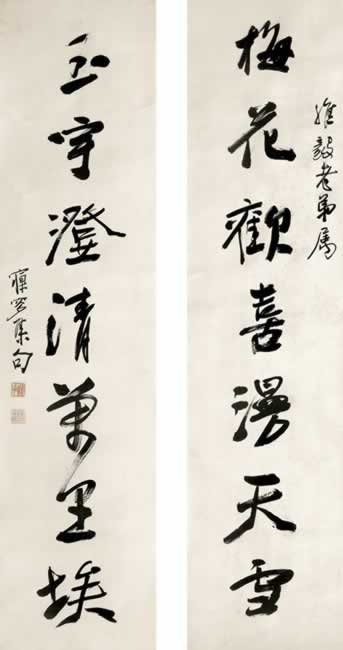 維毅老弟屬
梅花歡喜漫天雪
玉宇澄清萬里埃
集句